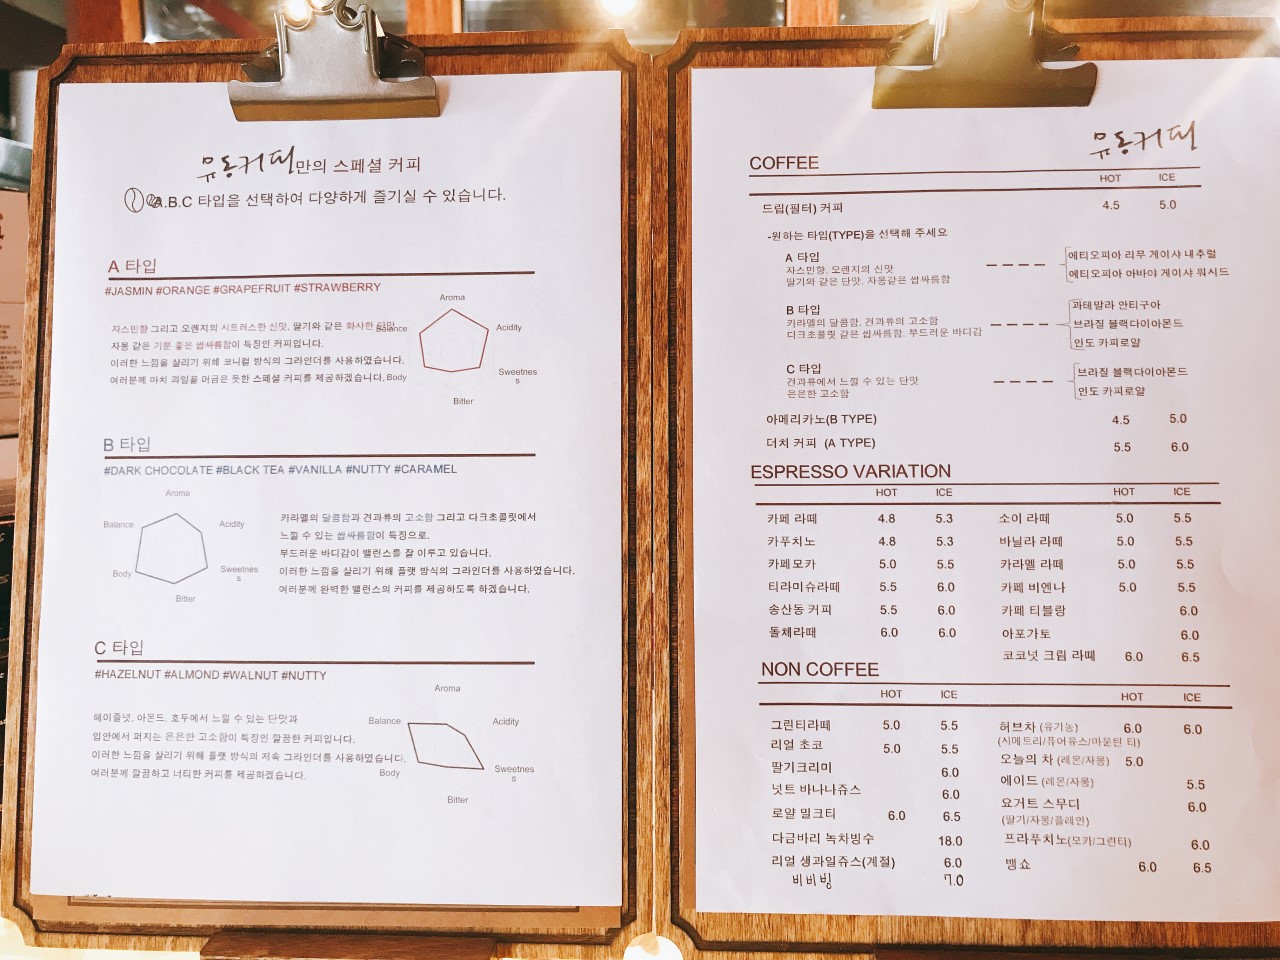 유동커피만의 스페셜 커피
A.B.C 타입을 선택하여 다양하게 즐기실 수 있습니다.
A 타입
#JASMIN #ORANGE #GRAPEFRUIT #STRAWBERRY
Aroma
Balance
Acidity
Sweetness
Body
Bitter
자스민향 그리고 오렌지의 시트러스한 신맛, 딸기와 같은 화사한 단맛,
자몽 같은 기분 좋은 쌉싸름함이 특징인 커피입니다.
이러한 느낌을 살리기 위해 코니컬 방식의 그라인더를 사용하였습니다.
여러분께 마치 과일을 머금은 듯한 스페셜 커피를 제공하겠습니다.
B 타입
#DARK CHOCOLATE #BLACK TEA #VANILLA #NUTTY #CARAMEL
Aroma
Balance
Acidity
Sweetness
Body
Bitter
카라멜의 달콤함과 견과류의 고소함 그리고 다크초콜릿에서
느낄 수 있는 쌉싸름함이 특징으로,
부드러운 바디감이 밸런스를 잘 이루고 있습니다.
이러한 느낌을 살리기 위해 플랫 방식의 그라인더를 사용하였습니다.
여러분께 완벽한 밸런스의 커피를 제공하도록 하겠습니다.
C 타입
#HAZELNUT #ALMOND #WALNUT #NUTTY
Aroma
Balance
Acidity
Sweetness
Body
Bitter
헤이즐넛, 아몬드, 호두에서 느낄 수 있는 단맛과
입안에서 퍼지는 은은한 고소함이 특징인 깔끔한 커피입니다.
이러한 느낌을 살리기 위해 플랫 방식의 저속 그라인더를 사용하였습니다.
여러분께 깔끔하고 너티한 커피를 제공하겠습니다.
유동커피
COFFEE
HOT ICE
드립(필터) 커피 4.5 5.0
-원하는 타입(TYPE)을 선택해 주세요
A 타입
자스민향, 오렌지의 신맛
딸기와 같은 단맛, 자몽같은 쌉싸름함
에티오피아 리무 게이샤 내추럴
에티오피아 아바야 게이샤 워시드
B 타입
카라멜의 달콤함, 견과류의 고소함
다크초콜릿 같은 씁싸름함, 부드러운 바디감
과테말라 안티구아
브라질 블랙다이아몬드
인도 카피로얄
C 타입
견과류에서 느낄 수 있는 단맛
은은한 고소함
브라질 블랙다이아몬드
인도 카피로얄
아메리카노(B TYPE) 4.5 5.0
더치 커피 (A TYPE) 5.5 6.0
ESPRESSO VARIATION
HOT ICE HOT ICE
카페 라떼 4.8 5.3 소이 라떼 5.0 5.5
카푸치노 4.8 5.3 바닐라 라떼 5.0 5.5
카페모카 5.0 5.5 카라멜 라떼 5.0 5.5
티라미슈라떼 5.5 6.0 카페 비엔나 5.0 5.5
송산동 커피 5.5 6.0 카페 티블랑 6.0
돌체라떼 6.0 6.0 아포가토 6.0
코코넛 크림 라떼 6.0 6.5
NON COFFEE
HOT ICE HOT ICE
그린티라떼 5.0 5.5 허브차 (유기농) 6.0 6.0
(시메트리/퓨어유스/마운틴 티)
리얼 초코 5.0 5.5 오늘의 차 (레몬/자몽) 5.0
딸기크리미 6.0 에이드 (레몬/자몽) 5.5
넛트 바나나쥬스 6.0 요거트 스무디 6.0
(딸기/자몽/플레인)
로얄 밀크티 6.0 6.5
다금바리 녹차빙수 18.0 프라푸치노(모카/그린티) 6.0
리얼 생과일쥬스(계절) 6.0 뱅쇼 6.0 6.5
비비빙 7.0